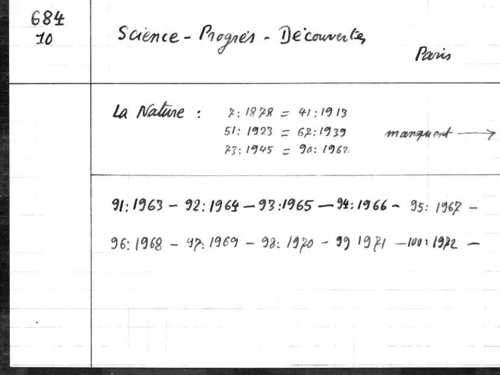 684
10
Science - Progrés - Découvertes
Paris
La Nature : 7:1878 = 41:1913
51:1923 = 67:1939 manquent →
73:1945 = 90:1962
91:1963 - 92:1964 - 93:1965 - 94:1966 - 95:1967 -
96:1968 - 97:1969 - 98:1970 - 99 1971 - 100:1972 -